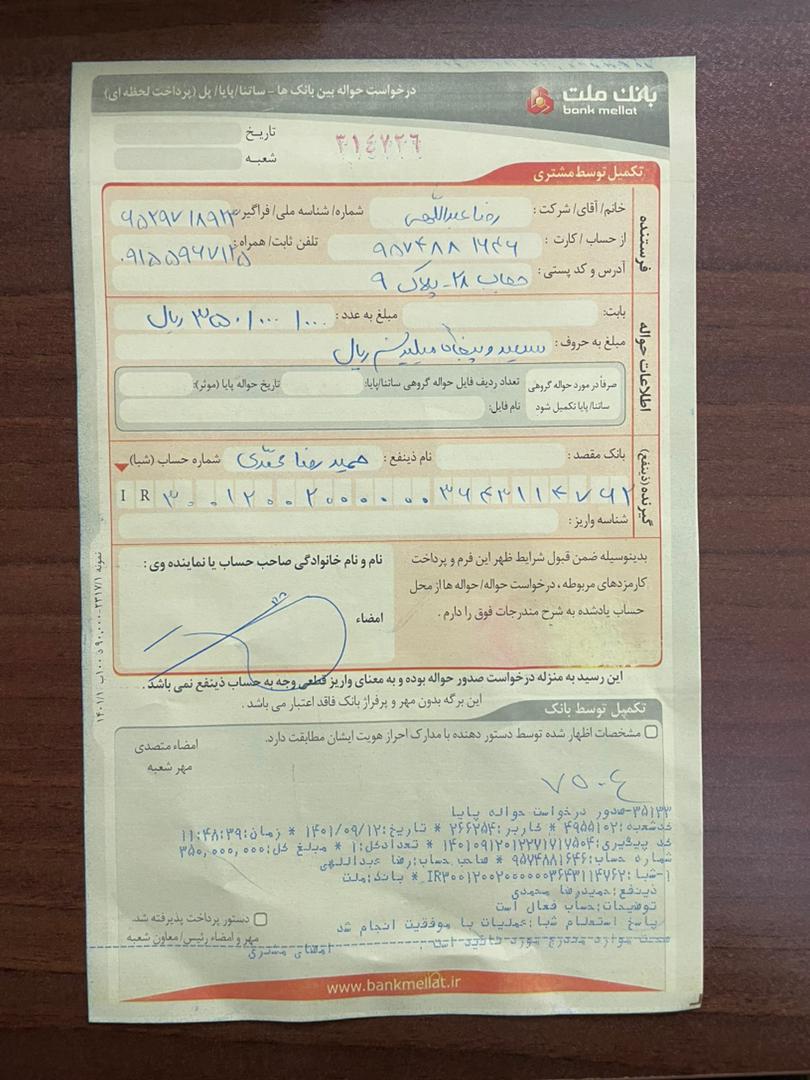 بانک ملت
bank mellat
درخواست حواله بین بانک ها - ساتنا/پایا/پل (پرداخت لحظه ای)
تاریخ
شعبه
۳۱۴۷۲۶
تکمیل توسط مشتری
فرستنده
خانم/آقای/شرکت : رضا عبداللهی شماره/شناسه ملی/فراگیر:
از حساب/کارت : ۹۵۷۴۸۸۱۶۴۶ تلفن ثابت/همراه : ۰۹۱۵۵۹۶۷۱۲۵
آدرس و کد پستی : ۲۸ - پلاک ۹
اطلاعات حواله
بابت: مبلغ به عدد : ۳۵۰/۰۰۰/۰۰۰ ریال
مبلغ به حروف : سیصد و پنجاه میلیون ریال
صرفاً در مورد حواله گروهی ساتنا/پایا تکمیل شود
تعداد ردیف فایل حواله گروهی ساتنا/پایا: تاریخ حواله پایا (موثر):
نام فایل:
گیرنده (ذینفع)
بانک مقصد : نام ذینفع : حمید رضا محمدی شماره حساب (شبا)
IR ۳۰۰۱۲۰۰۲۰۰۰۰۰۰۳۶۴۳۱۱۴۷۶۲
شناسه واریز :
بدینوسیله ضمن قبول شرایط ظهر این فرم و پرداخت
کارمزدهای مربوطه ، درخواست حواله/حواله ها از محل
حساب یادشده به شرح مندرجات فوق را دارم .
نام و نام خانوادگی صاحب حساب یا نماینده وی :
امضاء
این رسید به منزله درخواست صدور حواله بوده و به معنای واریز قطعی وجه به حساب ذینفع نمی باشد .
این برگه بدون مهر و پرفراژ بانک فاقد اعتبار می باشد .
تکمیل توسط بانک
مشخصات اظهار شده توسط دستور دهنده با مدارک احراز هویت ایشان مطابقت دارد.
امضاء متصدی
مهر شعبه
۷۵۰۴
۳۵۱۳۳-صدور درخواست حواله پایا
کدشعبه:۴۹۵۵۱۰۲ * کاربر:۲۶۶۲۵۴ * تاریخ:۱۴۰۱/۰۹/۱۲ * زمان:۱۱:۴۸:۳۹
کد پیگیری:۱۴۰۱۰۹۱۲۰۱۲۲۷۱۷۱۷۵۰۴ * تعدادکل:۱ * مبلغ کل:۳۵۰,۰۰۰,۰۰۰
شماره حساب:۹۵۷۴۸۸۱۶۴۶ * صاحب حساب:رضا عبداللهی
۱-شبا:IR۳۰۰۱۲۰۰۲۰۰۰۰۰۰۳۶۴۳۱۱۴۷۶۲ * بانک:ملت
ذینفع:حمیدرضا محمدی
توضیحات:حساب فعال است
پاسخ استعلام شبا:عملیات با موفقیت انجام شد
صحت موارد مندرج مورد تائید است . امضای مشتری
دستور پرداخت پذیرفته شد.
مهر و امضاء رئیس/معاون شعبه
www.bankmellat.ir